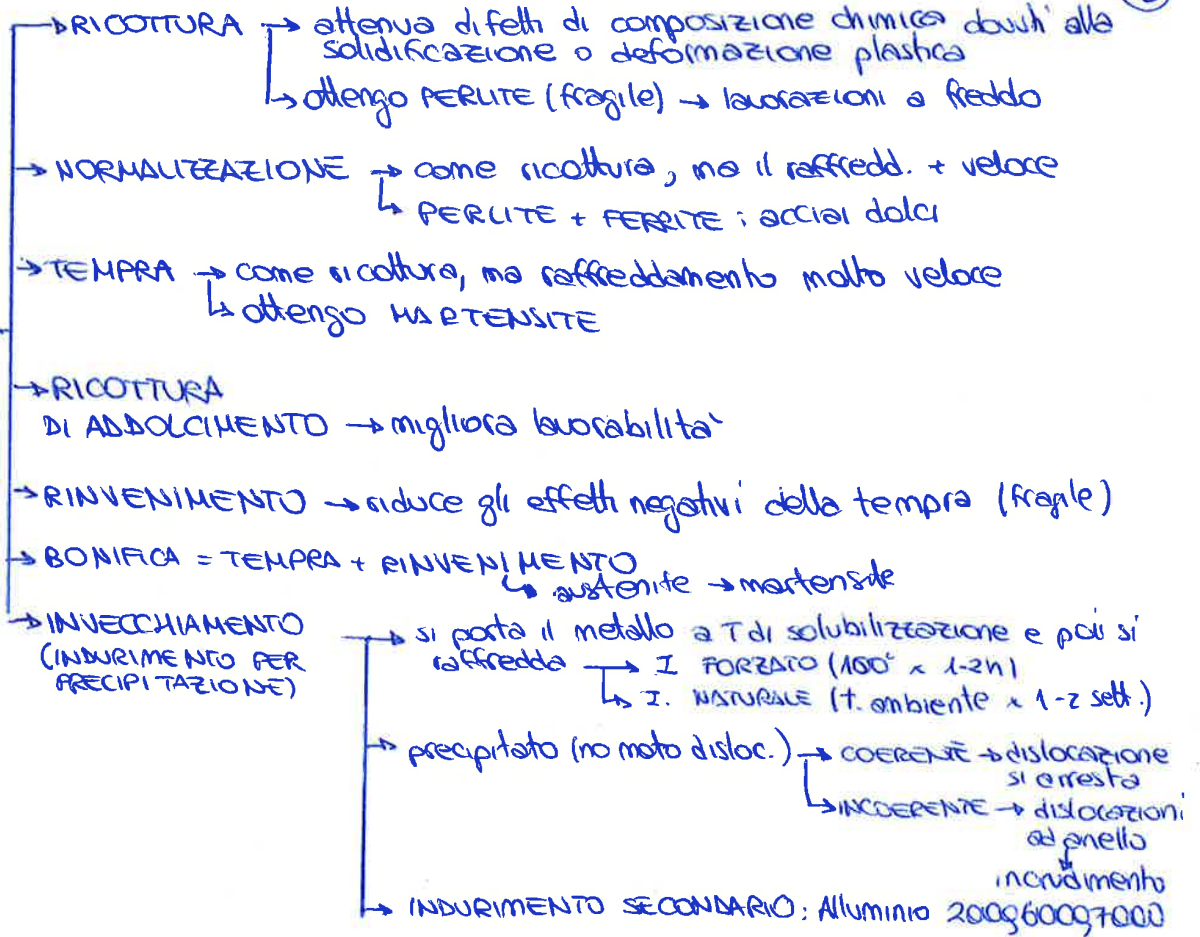 → RICOTTURA → attenua difetti di composizione chimica dovuti alla
solidificazione o deformazione plastica
↳ ottengo PERLITE (fragile) → lavorazioni a freddo
→ NORMALIZZAZIONE → come ricottura, ma il raffredd. + veloce
↳ PERLITE + FERRITE : acciai dolci
→ TEMPRA → come ricottura, ma raffreddamento molto veloce
↳ ottengo MARTENSITE
→ RICOTTURA
DI ADDOLCIMENTO → migliora lavorabilità
→ RINVENIMENTO → riduce gli effetti negativi della tempra (fragile)
→ BONIFICA = TEMPRA + RINVENIMENTO
↳ austenite → martensite
→ INVECCHIAMENTO
(INDURIMENTO PER
PRECIPITAZIONE)
→ si porta il metallo a T di solubilizzazione e poi si
raffredda → I FORZATO (160° x 1-2h)
↳ I. NATURALE (t. ambiente x 1-2 sett.)
→ precipitato (no moto disloc.) → COERENTE → dislocazione
si arresta
↳ INCOERENTE → dislocazioni
ad anello
↓
incrudimento
→ INDURIMENTO SECONDARIO : Alluminio 2000, 6000, 7000